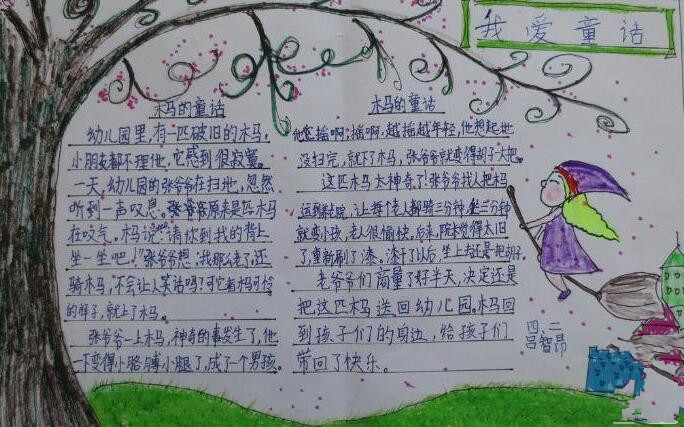 我爱童话
木马的童话
幼儿园里,有一匹破旧的木马,
小朋友都不理他,它感到很寂寞。
一天,幼儿园的张爷爷在扫地,忽然
听到一声叹息。张爷爷原来是匹木马
在叹气。木马说:“请你到我的背上
坐一坐吧!”张爷爷想:我那么老了,还
骑木马,不会让人笑话吗?可它看木马可怜
的样子,就上了木马。
张爷爷一上木马,神奇的事发生了,他
一下变得小胳膊小腿了,成了一个男孩。
木马的童话
他摇啊,摇啊,越摇越年轻,他想起地
没扫完,就下了木马,张爷爷就变得胡子大把。
这匹木马太神奇了!张爷爷找人把木马
运到院,让每个老人都骑三分钟,坐三分钟
就变小孩,老人很愉快。后来,院长觉得太旧
了,重新刷了漆。漆干了以后,坐上去还是把胡子。
老爷爷们商量了好半天,决定还是
把这匹木马送回幼儿园。木马回
到孩子们的身边,给孩子们
带回了快乐。
四、二
吕智昂